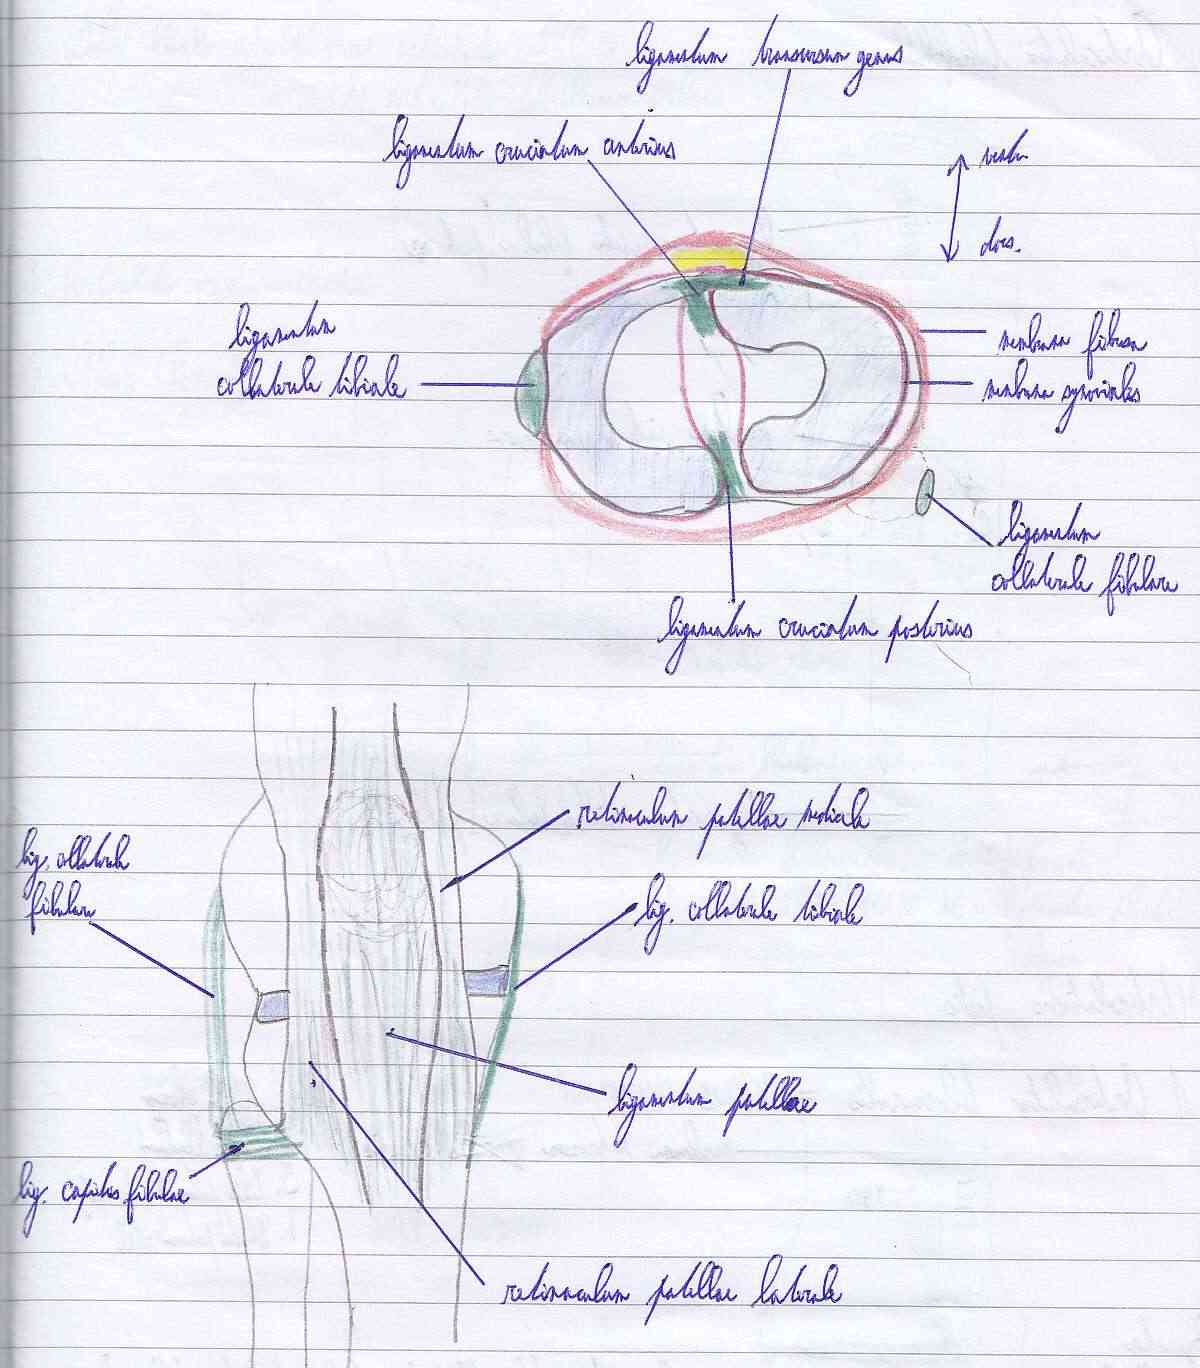 ligamentum transversum genus
ligamentum cruciatum anterius
ventr.
dors.
ligamentum
collaterale tibiale
membrana fibrosa
membrana synovialis
ligamentum
collaterale fibulare
ligamentum cruciatum posterius
retinaculum patellae mediale
lig. collaterale
fibulare
lig. collaterale tibiale
ligamentum patellae
lig. capitis fibulae
retinaculum patellae laterale